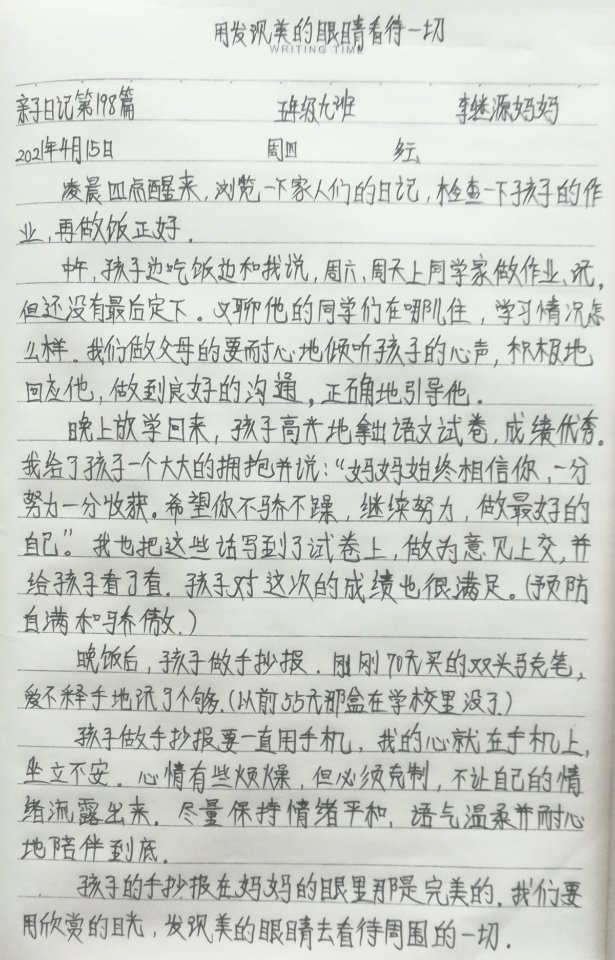 用发现美的眼睛看待一切
WRITING TIME
亲子日记第198篇 五年级九班 李继源妈妈
2021年4月15日 周四 多云
凌晨四点醒来,浏览一下家人们的日记,检查一下孩子的作
业,再做饭正好.
中午,孩子边吃饭边和我说,周六、周天上同学家做作业、玩,
但还没有最后定下。又聊他的同学们在哪儿住,学习情况怎
么样。我们做父母的要耐心地倾听孩子的心声,积极地
回应他,做到良好的沟通,正确地引导他。
晚上放学回来,孩子高兴地拿出语文试卷,成绩优秀.
我给了孩子一个大大的拥抱并说:“妈妈始终相信你,一分
努力一分收获。希望你不骄不躁,继续努力,做最好的
自己”。我也把这些话写到了试卷上,做为意见上交,并
给孩子看了看.孩子对这次的成绩也很满足。(预防
自满和骄傲.)
晚饭后,孩子做手抄报.刚刚70元买的双头马克笔,
爱不释手地玩了个够.(以前55元那盒在学校里没了.)
孩子做手抄报要一直用手机,我的心就在手机上,
坐立不安.心情有些烦燥,但必须克制,不让自己的情
绪流露出来.尽量保持情绪平和,语气温柔并耐心
地陪伴到底.
孩子的手抄报在妈妈的眼里那是完美的.我们要
用欣赏的目光,发现美的眼睛去看待周围的一切.